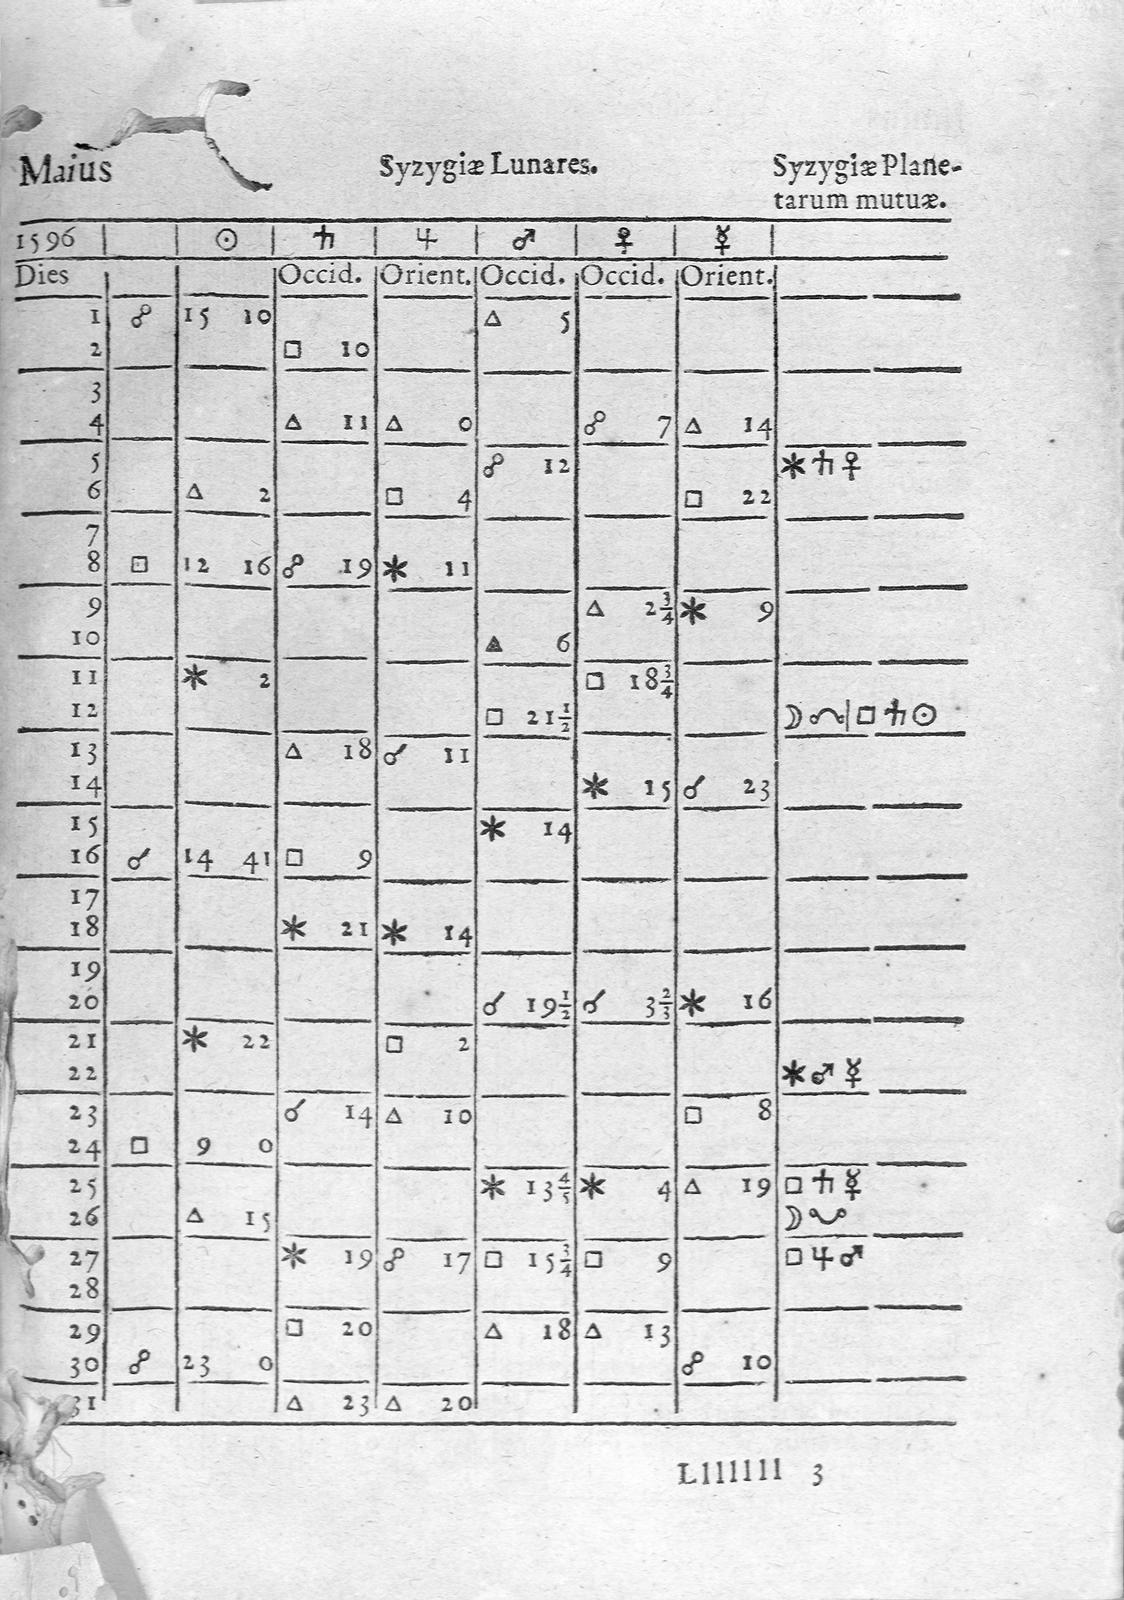 Maius Syzygiæ Lunares. Syzygiæ Plane-
tarum mutuæ.
1596 ☉ ♄ ♃ ♂ ♀ ☿
Dies Occid. Orient. Occid. Occid. Orient.
1 ☍ 15 10 △ 5
2 □ 10
3
4 △ 11 △ 0 ☍ 7 △ 14
5 ☍ 12 ⚹ ♄ ♀
6 △ 2 □ 4 □ 22
7
8 □ 12 16 ☍ 19 ⚹ 11
9 △ 2¾ ⚹ 9
10 △ 6
11 ⚹ 2 □ 18¾
12 □ 21½ ☽ ☊ | □ ♄ ☉
13 △ 18 ☌ 11
14 ⚹ 15 ☌ 23
15 ⚹ 14
16 ☌ 14 41 □ 9
17
18 ⚹ 21 ⚹ 14
19
20 ☌ 19½ ☌ 3⅔ ⚹ 16
21 ⚹ 22 □ 2
22 ⚹ ♂ ☿
23 ☌ 14 △ 10 □ 8
24 □ 9 0
25 ⚹ 13⅘ ⚹ 4 △ 19 □ ♄ ☿
26 △ 15 ☽ ☋
27 ⚹ 19 ☍ 17 □ 15¾ □ 9 □ ♃ ♂
28
29 □ 20 △ 18 △ 13
30 ☍ 23 0 ☍ 10
31 △ 23 △ 20
Lllllll 3